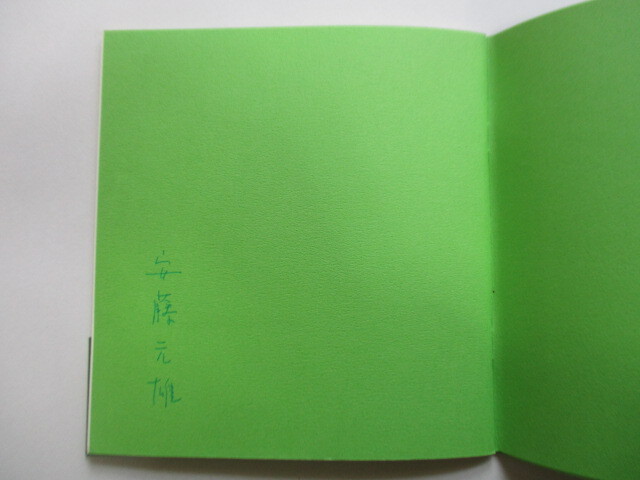 安藤元雄